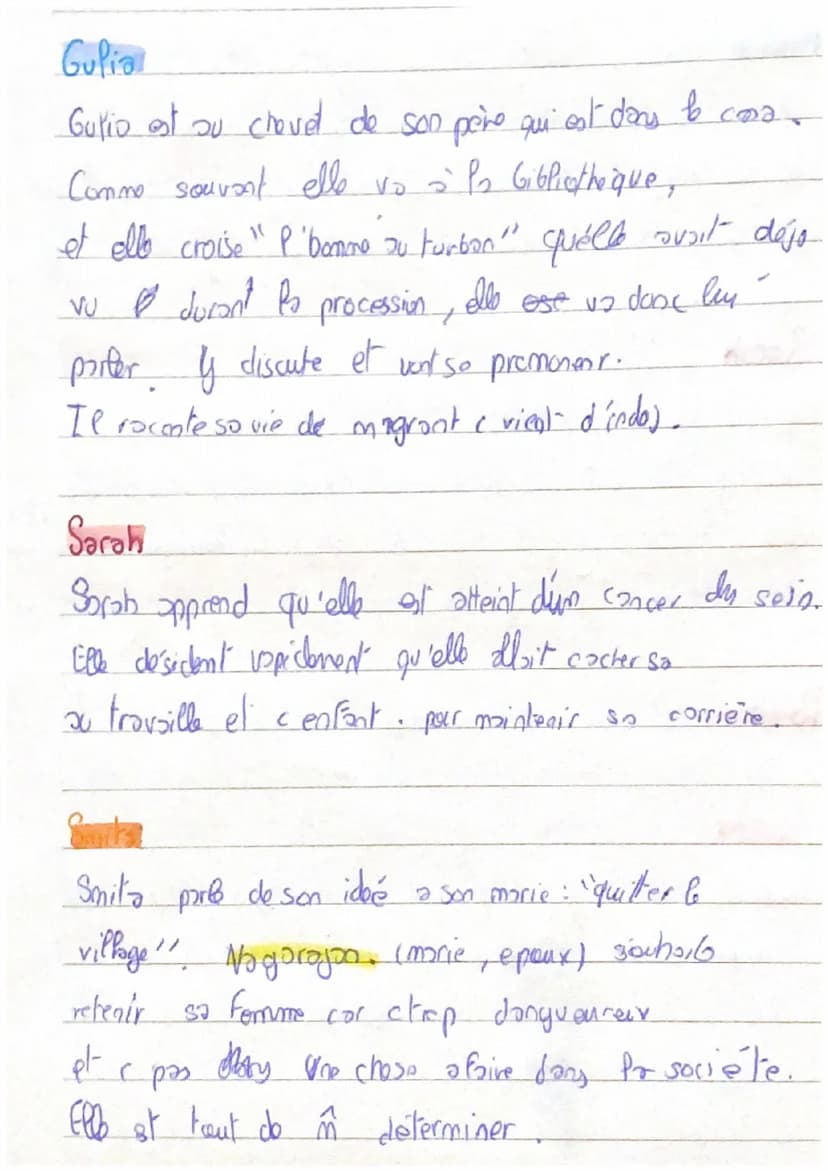 Gulia
Gulia est au chevet de son père qui est dans le coma.
Comme souvent elle va à la bibliotheque,
et elle croise "l'homme au turban" quelle avait déja
vu durant la procession, elle ose va donc lui
parler. Ils discute et vont se promener.
Il raconte sa vie de migrant (vient d'inde).
Sarah
Sarah apprend qu'elle est atteint d'un cancer du sein.
Elle désident rapidement qu'elle allait cacher sa
au travaille et c enfant. pour maintenir sa carrière.
Smita
Smita parle de son idée a son marie : "quitter le
village". Nagarajan. (marie, epoux) souhaite
retenir sa femme car c trop dangueureux
et c pas une chose a faire dans la société.
Elle est tout de m̂ déterminer.